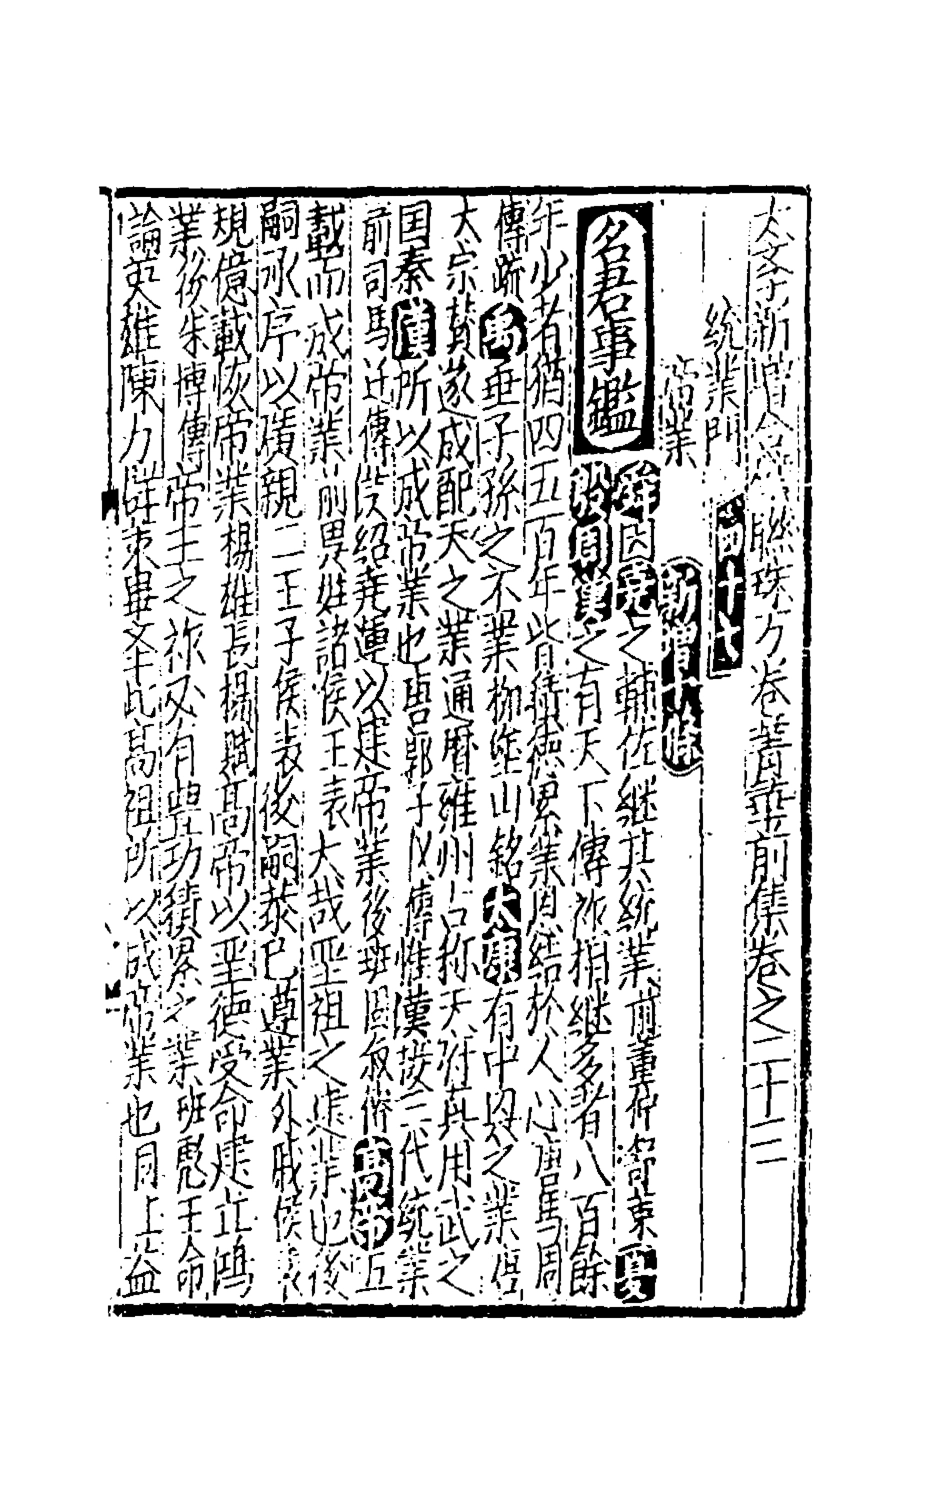 太學新增合璧聯珠万卷菁華前集卷之二十三
統業門 四十七
帝業 新增十條
名君事鑑 舜因堯之輔佐継其統業前董仲舒策夏
殷周漢之有天下傳祚相継多者八百餘
年少者猶四五百年皆積德累業恩結於人心唐馬周
傳疏禹垂子孫之不業柳塗山銘太康有中興之業唐
太宗贊遂成配天之業通曆雍州占称天府真用武之
国秦漢所以成帝業也唐郭子仪傳惟漢接三代統業
前司馬迁傳漢紹堯運以建帝業後班固叙傳高帝五
載而成帝業前異姓諸侯王表大哉聖祖之建業也後
嗣承序以廣親二王子侯表後嗣恭己遵業外戚侯表
規億載恢帝業楊雄長楊賦高帝以聖德受命建立鴻
業後朱博傳帝王之祚必有豊功積累之業班彪王命
論英雄陳力群策畢文半此高祖所以成帝業也同上益